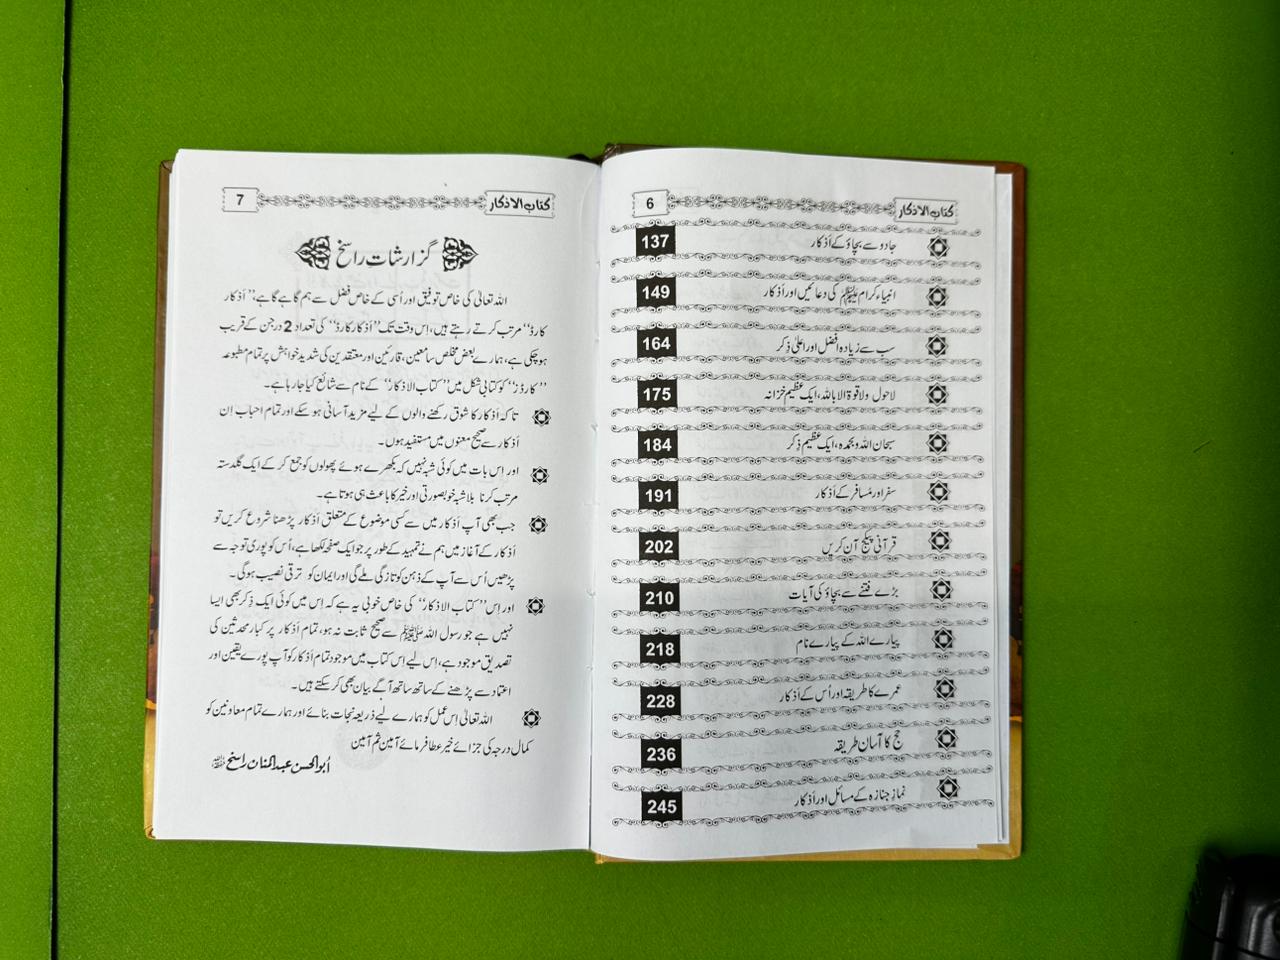 کتاب الاذکار 6
جادو سے بچاؤ کے اَذکار 137
انبیاء کرام ﷺ کی دعائیں اور اَذکار 149
سب سے زیادہ افضل اور اعلیٰ ذِکر 164
لاحول ولاقوۃ الا باللہ، ایک عظیم خزانہ 175
سبحان اللہ وبحمدہ، ایک عظیم ذِکر 184
سفر اور مُسافر کے اَذکار 191
قرآنی پیکج آن کریں 202
بڑے فتنے سے بچاؤ کی آیات 210
پیارے اللہ کے پیارے نام 218
عمرے کا طریقہ اور اُس کے اَذکار 228
حج کا آسان طریقہ 236
نمازِ جنازہ کے مسائل اور اَذکار 245
کتاب الاذکار 7
گزارشاتِ راسخ
اللہ تعالیٰ کی خاص توفیق اور اُسی کے خاص فضل سے ہم گاہے گاہے، ’’اَذکار
کارڈ‘‘ مرتب کرتے رہتے ہیں، اِس وقت تک ’’اَذکار کارڈ‘‘ کی تعداد 2 درجن کے قریب
ہو چکی ہے، ہمارے بعض مخلص سامعین، قارئین اور معتقدین کی شدید خواہش پر تمام مطبوعہ
’’کارڈز‘‘ کو کتابی شکل میں ’’کتاب الاذکار‘‘ کے نام سے شائع کیا جا رہا ہے۔
تاکہ اَذکار کا شوق رکھنے والوں کے لیے مزید آسانی ہو سکے اور تمام احباب اِن
اَذکار سے صحیح معنوں میں مستفید ہوں۔
اور اس بات میں کوئی شبہ نہیں کہ بکھرے ہوئے پھولوں کو جمع کر کے ایک گلدستہ
مرتب کرنا بلاشبہ خوبصورتی اور خیر کا باعث ہی ہوتا ہے۔
جب بھی آپ اَذکار میں سے کسی موضوع کے متعلق اَذکار پڑھنا شروع کریں تو
اَذکار کے آغاز میں ہم نے تمہید کے طور پر جو ایک صفحہ لکھا ہے، اُس کو پوری توجہ سے
پڑھیں اُس سے آپ کے ذہن کو تازگی ملے گی اور ایمان کو ترقی نصیب ہوگی۔
اور اِس ’’کتاب الاذکار‘‘ کی خاص خوبی یہ ہے کہ اِس میں کوئی ایک ذِکر بھی ایسا
نہیں ہے جو رسول اللہ ﷺ سے صحیح ثابت نہ ہو، تمام اَذکار پر کبار محدثین کی
تصدیق موجود ہے، اِس لیے اِس کتاب میں موجود تمام اَذکار کو آپ پورے یقین اور
اعتماد سے پڑھنے کے ساتھ ساتھ آگے بیان بھی کر سکتے ہیں۔
اللہ تعالیٰ اِس عمل کو ہمارے لیے ذریعہ نجات بنائے اور ہمارے تمام معاونین کو
کمال درجہ کی جزائے خیر عطا فرمائے آمین ثُم آمین
أبوالحسن عبدالمنان راسخ